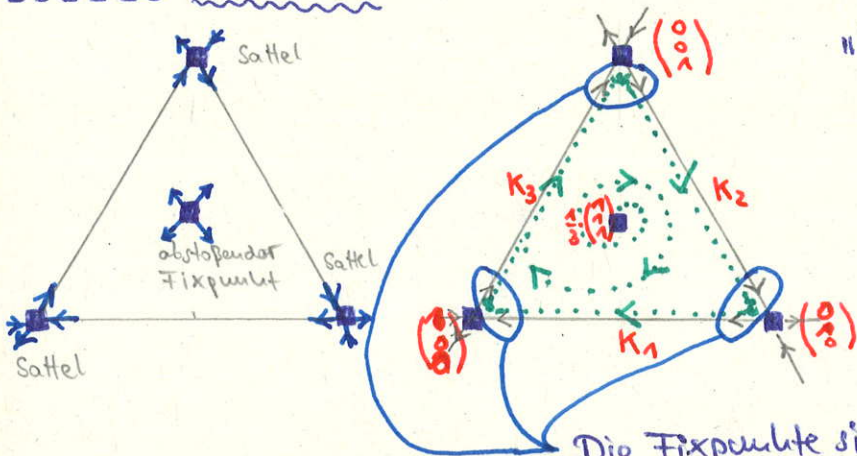 Sattel
abstoßender
Fixpunkt
Sattel
Sattel
(0 0 1)
K3
K2
1/3 · (1 1 1)
K1
(0 1 0)
Die Fixpunkte si